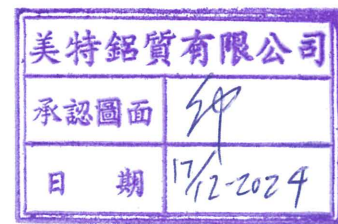 美特鋁質有限公司
承認圖面
日 期 17/12-2024